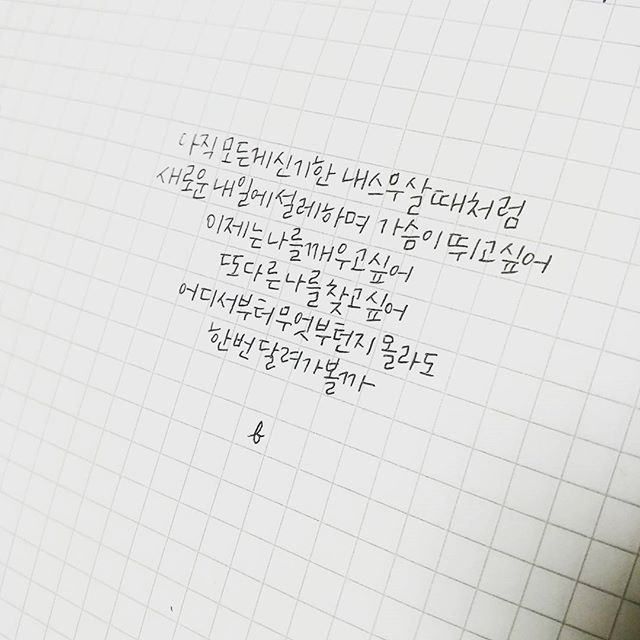 아직 모든게 신기한 내 스무살 때처럼
새로운 내일에 설레하며 가슴이 뛰고싶어
이제는 나를 깨우고싶어
또다른 나를 찾고싶어
어디서부터 무엇부턴지 몰라도
한번 달려가볼까
b